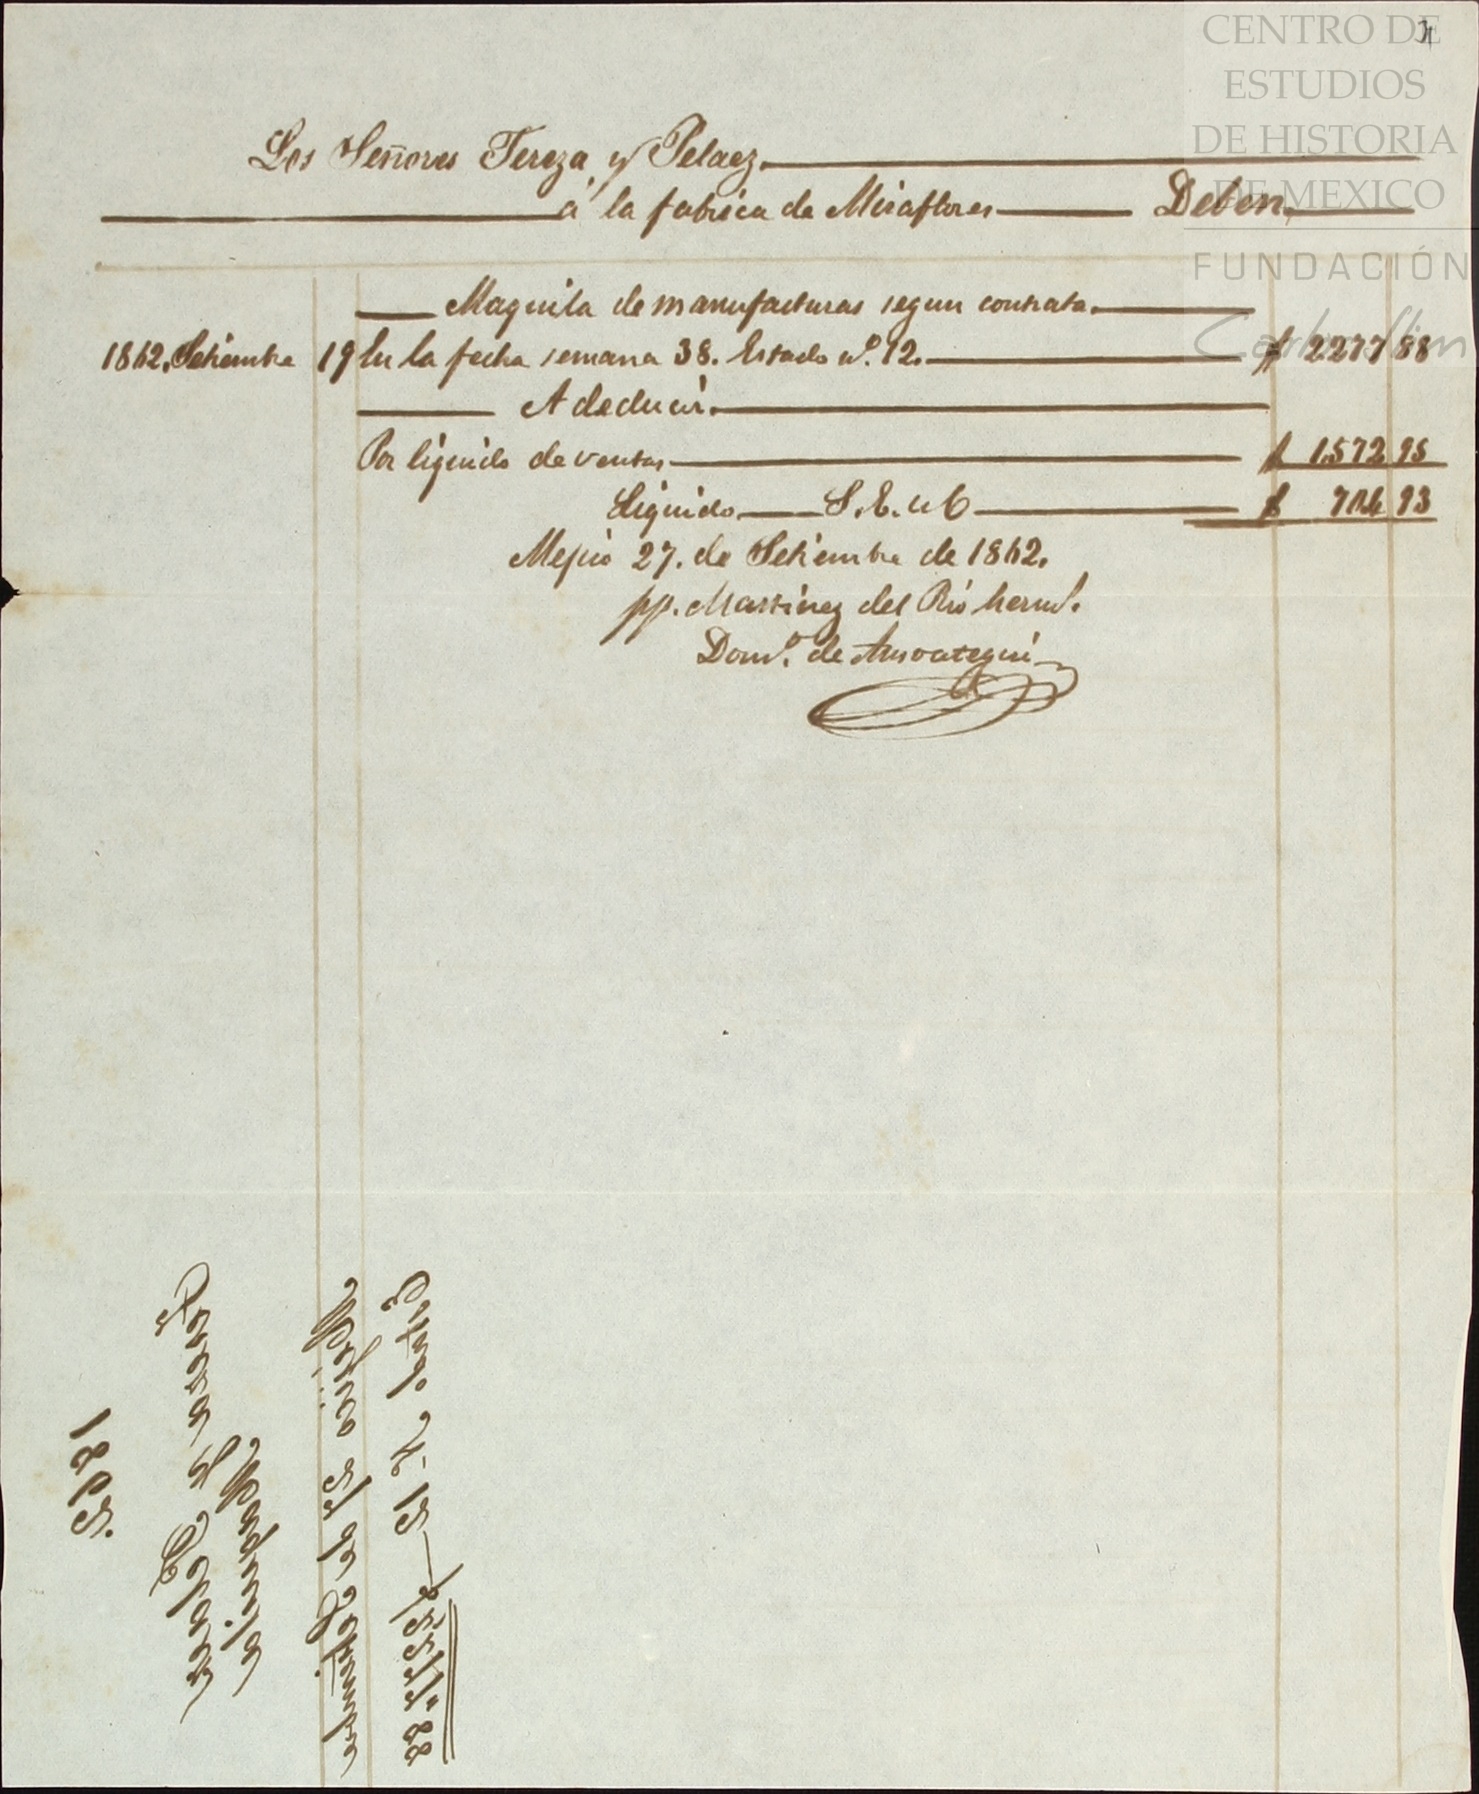 CENTRO DE
ESTUDIOS
DE HISTORIA
DE MEXICO
FUNDACIÓN
Carlos Slim
Los Señores Tereza y Pelaez
á la fabrica de Miraflores Deben
Maquila de manufacturas segun contrata
1862. Setiembre 19 En la fecha semana 38. Estado nº. 12. $ 2277 88
A deducir.
Por liquido de ventas $ 1.572 95
Liquido S. E. u O $ 704 93
Mejico 27. de Setiembre de 1862.
pp. Martinez del Rio hermS.
Domº. de Ansoategui
1862.
Tereza y Pelaez
Maquila
Mejico 27 de Setiembre
Estado nº 12
$2277,,88